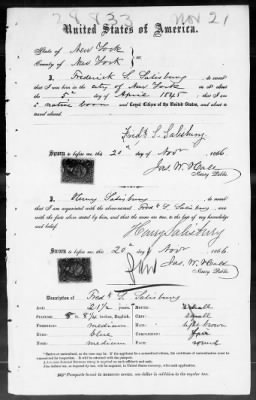 28833 Nov 21
United States of America.
State of New York
County of New York
I, Frederick S. Salisbury, do swear
that I was born in the city of New York
on the 5th day of April 1845
a native born and Loyal Citizen of the United States, and about to
travel abroad.
Fredk S. Salisbury
Sworn to before me, this 20th day of Nov 1866
Jas. W. Hale
Notary Public.
I, Henry Salisbury do swear
that I am acquainted with the above-named Fredk S. Salisbury, and
with the facts above stated by him, and that the same are true to the best of my knowledge
and belief.
Henry Salisbury
Sworn to before me, this 20th day of Nov 1866
Jas. W. Hale
Notary Public
Description of Fredk S. Salisbury
Age: 21 1/2 years.
Stature: 5 8 1/2 inches, English. small
Forehead: medium light brown
Eyes: blue fair
Nose: medium round